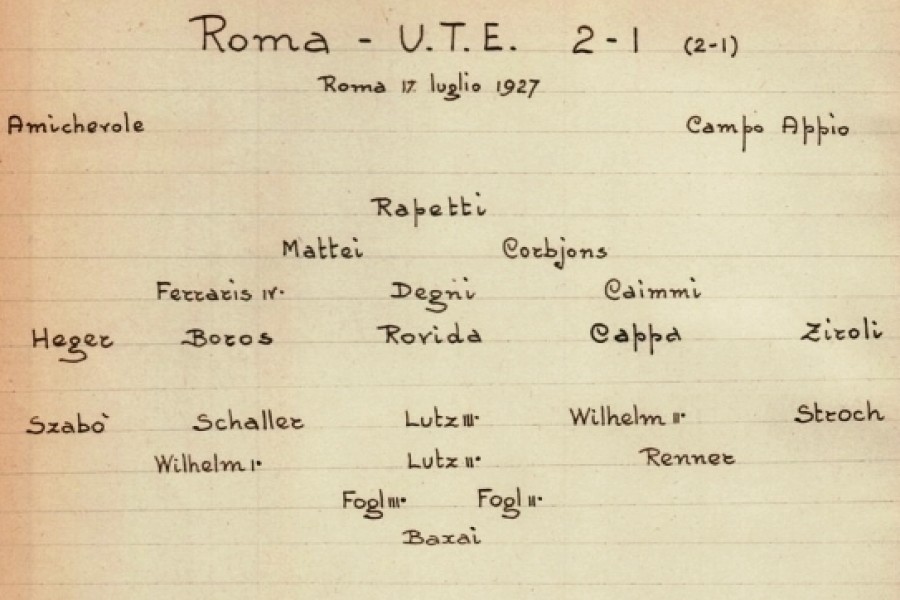 Roma - U.T.E. 2-1 (2-1)
Roma 17 luglio 1927
Amichevole Campo Appio
Rapetti
Mattei Corbjons
Ferraris IV. Degni Caimmi
Heger Boros Rovida Cappa Ziroli
Szabò Schaller Lutz III. Wilhelm II. Stroch
Wilhelm I. Lutz II. Renner
Fogl III. Fogl II.
Baxai